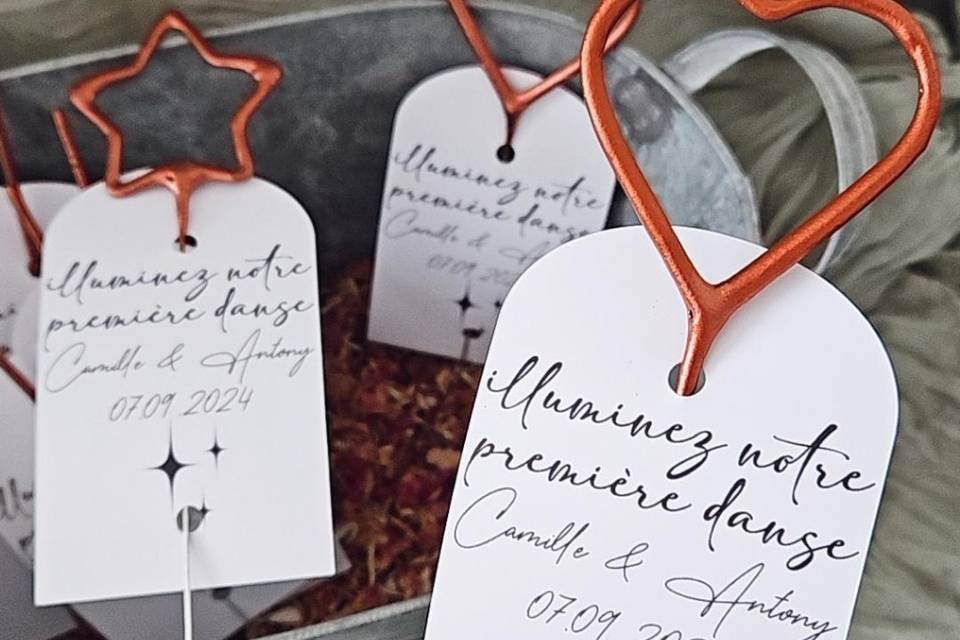 illuminez notre
première danse
Camille & Antony
07.09.2024
illuminez notre
première danse
Camille &
07.09.202
illuminez notre
première danse
Camille & Antony
07.09